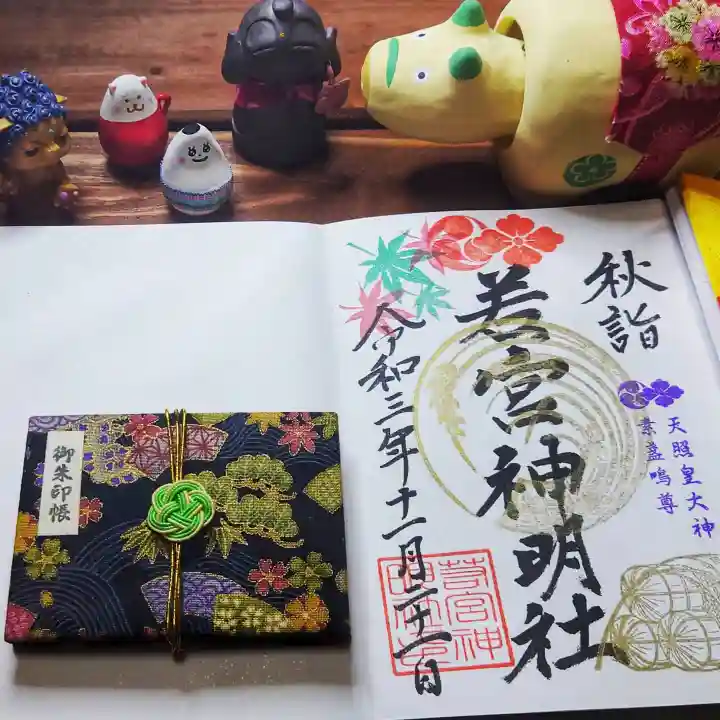 秋詣
若宮神明社
天照皇大神
素盞鳴尊
令和三年十一月二十二日
御朱印帳